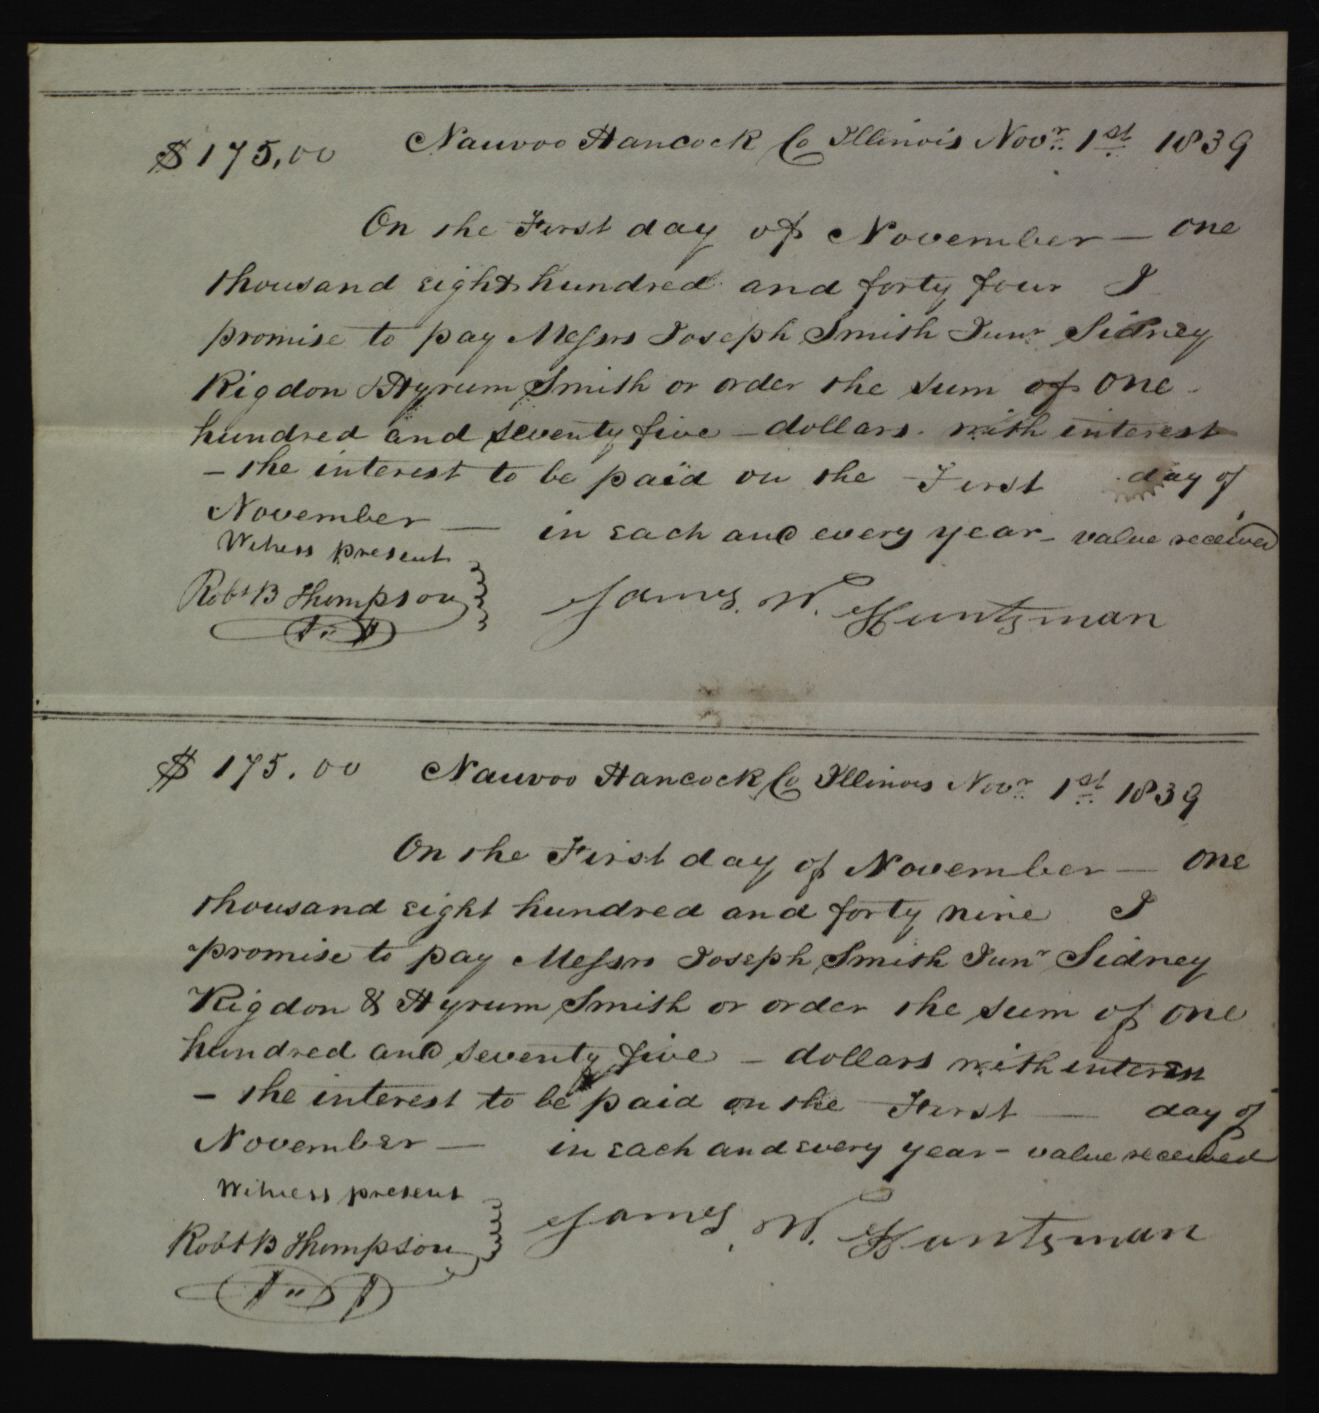 $175,00 Nauvoo Hancock Co Illinois Novr. 1st 1839
On the First day of November — One
thousand eight hundred and forty four I
promise to pay Messrs Joseph Smith Junr Sidney
Rigdon & Hyrum Smith or order the sum of One
hundred and seventy five — dollars. with interest
— the interest to be paid on the First day of
November — in each and every year — value received
Witness present
Robt B Thompson James. W. Huntsman
$175.00 Nauvoo Hancock Co Illinois Novr. 1st 1839
On the First day of November — One
thousand eight hundred and forty nine I
promise to pay Messrs Joseph Smith Junr Sidney
Rigdon & Hyrum Smith or order the sum of One
hundred and seventy five — dollars with interest
— the interest to be paid on the First — day of
November — in each and every year — value received
Witness present
Robt B Thompson James. W. Huntsman